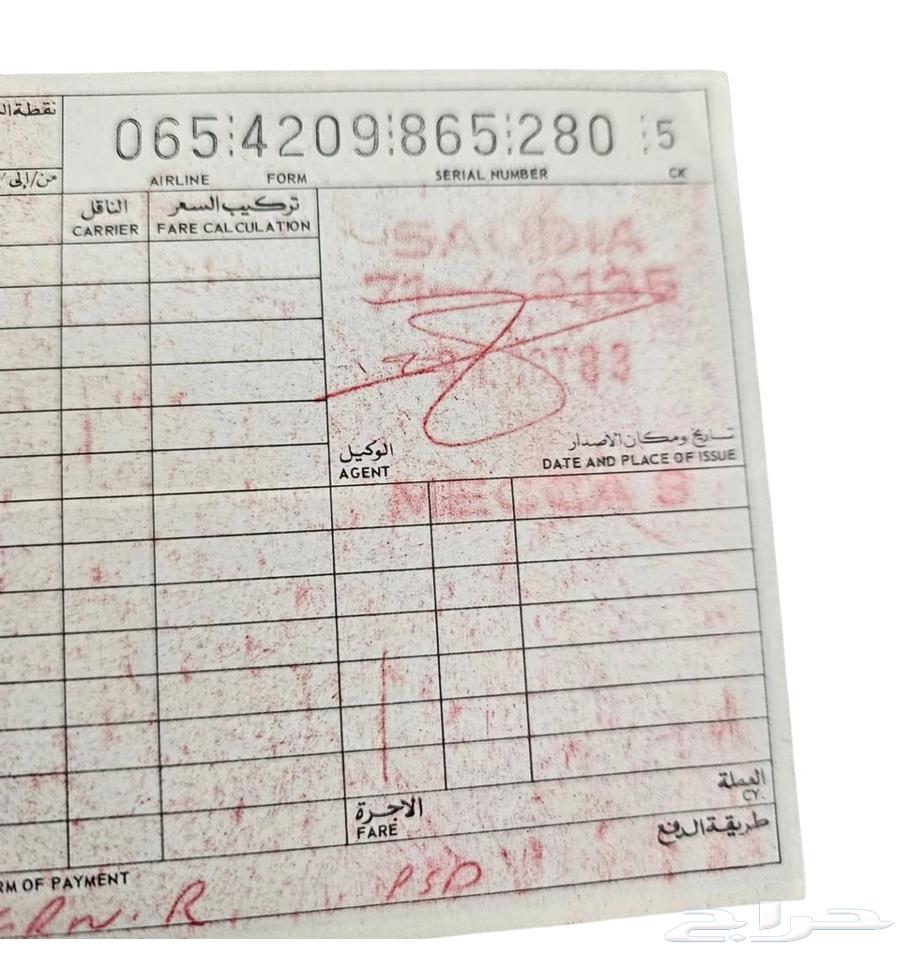 نقطة
065 4209 865 280 5
AIRLINE FORM SERIAL NUMBER CK
من/إلى
الناقل تركيب السعر
CARRIER FARE CALCULATION
SAUDIA
83
الوكيل تاريخ ومكان الاصدار
AGENT DATE AND PLACE OF ISSUE
MECCA S
العملة
CY.
الاجرة
FARE
طريقة الدفع
RM OF PAYMENT
R PSD
حراج